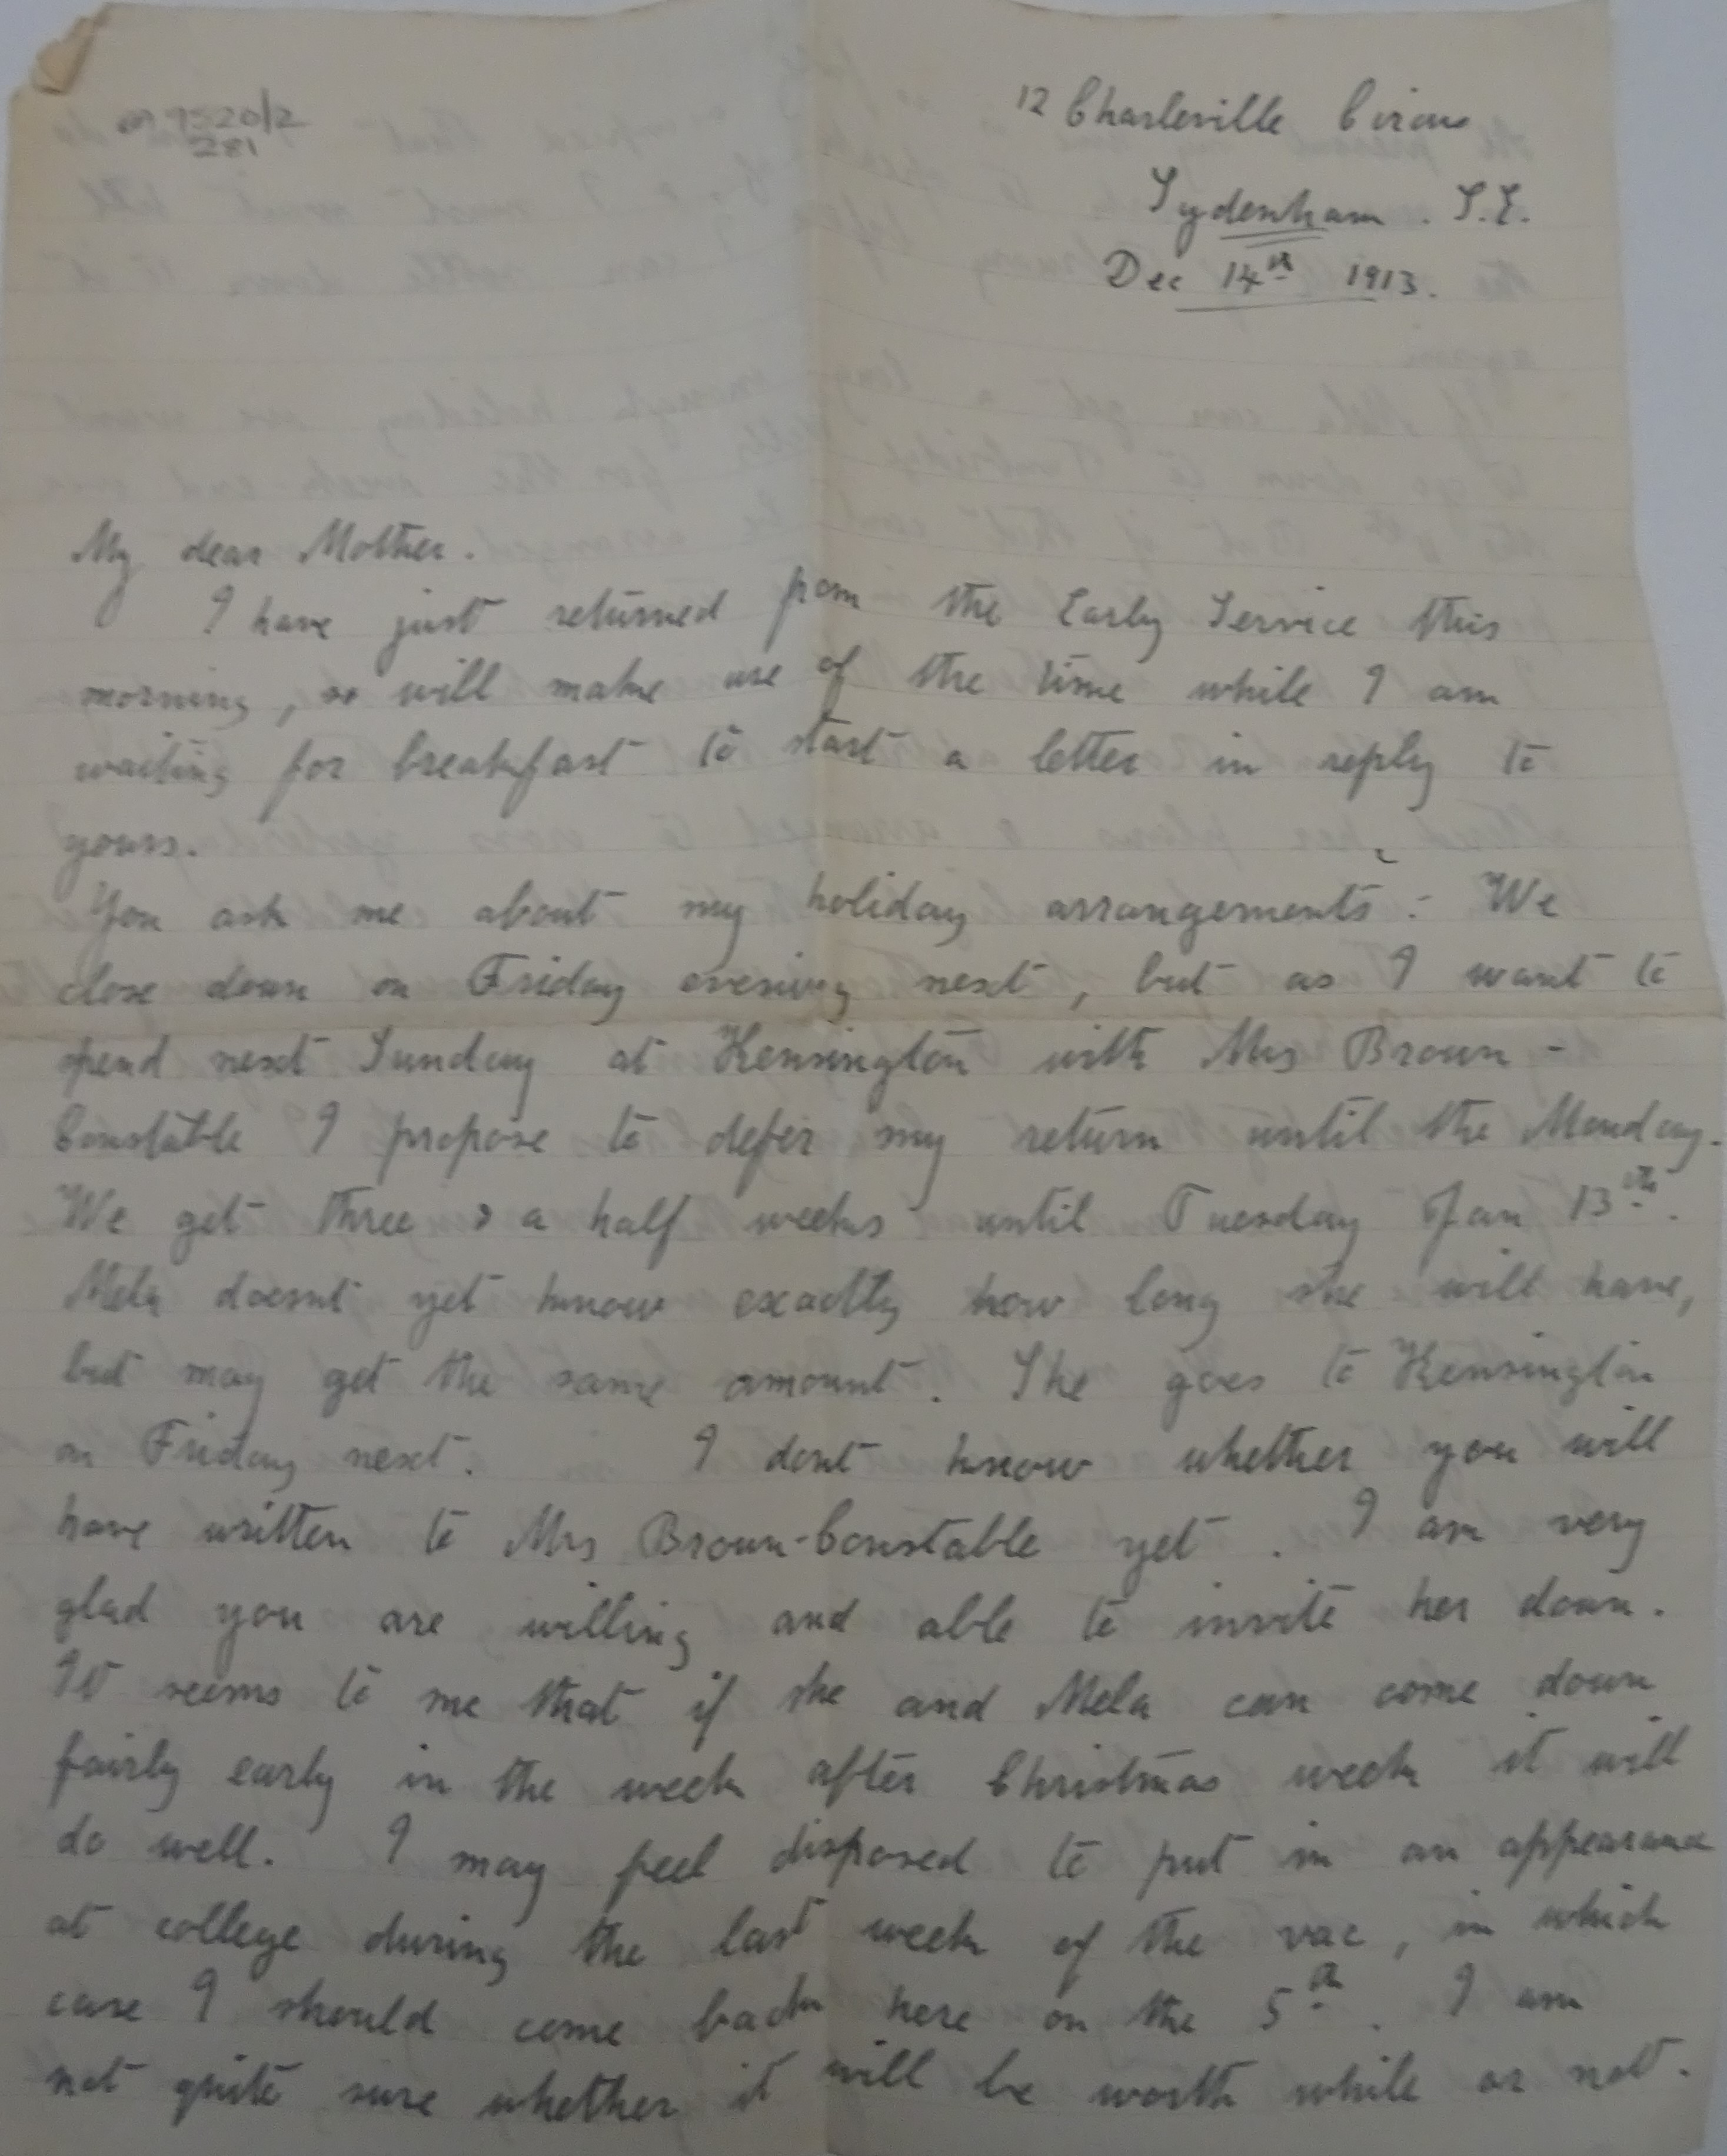 9520/2
281
12 Charleville Circus
Sydenham. S.E.
Dec 14th 1913.
My dear Mother.
I have just returned from the Early Service this
morning, so will make use of the time while I am
waiting for breakfast to start a letter in reply to
yours.
You ask me about my holiday arrangements :- We
close down on Friday evening next, but as I want to
spend next Sunday at Kensington with Mrs Brown-
Constable I propose to defer my return until the Monday.
We get three & a half weeks until Tuesday Jan 13th.
Mela doesnt yet know exactly how long she will have,
but may get the same amount. She goes to Kensington
on Friday next. I dont know whether you will
have written to Mrs Brown-Constable yet. I am very
glad you are willing and able to invite her down.
It seems to me that if she and Mela can come down
fairly early in the week after Christmas week it will
do well. I may feel disposed to put in an appearance
at college during the last week of the vac, in which
case I should come back here on the 5th. I am
not quite sure whether it will be worth while or not.